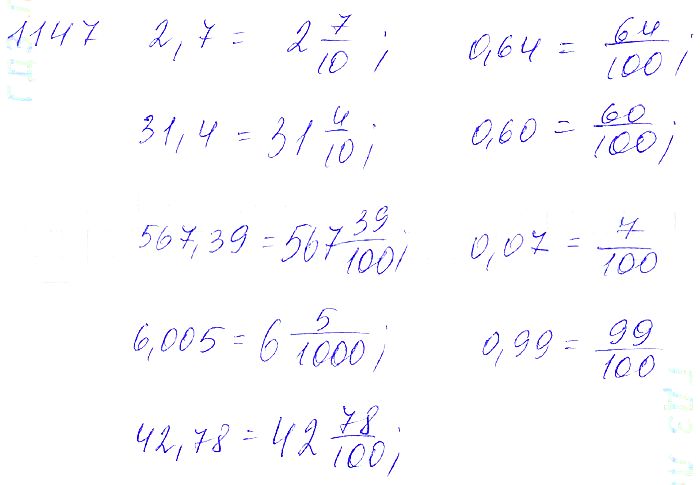 1147 2,7 = 2 7/10; 0,64 = 64/100;
31,4 = 31 4/10; 0,60 = 60/100;
567,39 = 567 39/100; 0,07 = 7/100
6,005 = 6 5/1000; 0,99 = 99/100
42,78 = 42 78/100;